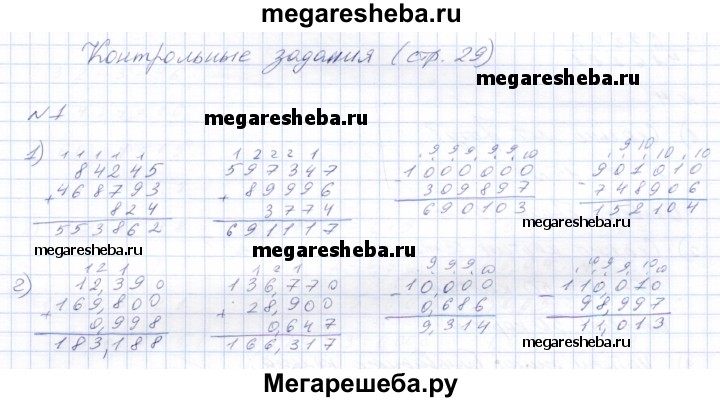 megaresheba.ru
Контрольные задания (стр. 29)
megaresheba.ru
№1
megaresheba.ru
1) 1 1 1 1 1
84245
+ 468793
824
553862
1 2 2 2 1
597347
+ 89996
3774
691117
9 9 9 9 9 10
1000000
- 309897
690103
9 10 10 10
901010
- 748906
152104
megaresheba.ru
megaresheba.ru
megaresheba.ru
2) 1 2 1
12,390
+ 169,800
0,998
183,188
1 2 1
136,770
+ 28,900
0,647
166,317
9 9 9 10
10,000
- 0,686
9,314
10 9 9 10
110,010
- 98,997
11,013
megaresheba.ru
Мегарешеба.ру